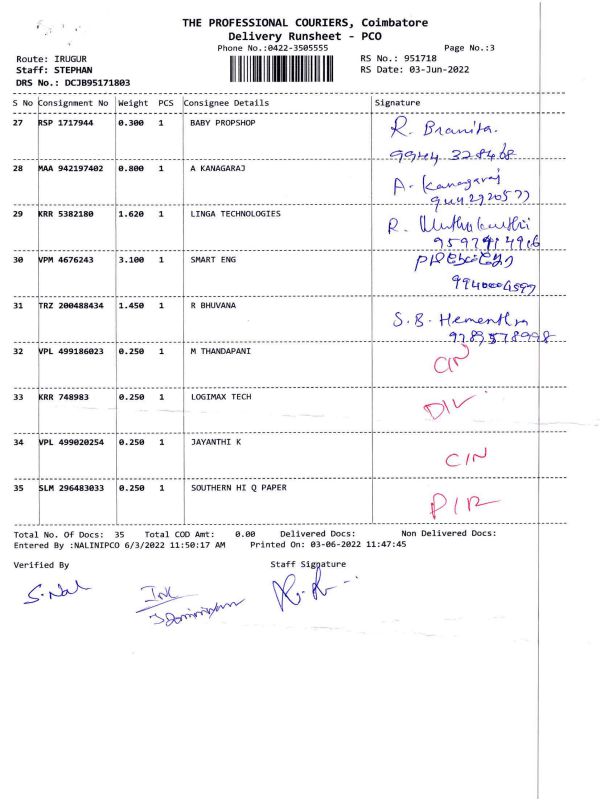 THE PROFESSIONAL COURIERS, Coimbatore
Delivery Runsheet - PCO
Phone No.:0422-3505555 Page No.:3
Route: IRUGUR RS No.: 951718
Staff: STEPHAN RS Date: 03-Jun-2022
DRS No.: DCJB95171803
S No Consignment No Weight PCS Consignee Details Signature
27 RSP 1717944 0.300 1 BABY PROPSHOP R. Branita.
99444 328468
28 MAA 942197402 0.800 1 A KANAGARAJ A. Kanagaraj
29 KRR 5382180 1.620 1 LINGA TECHNOLOGIES R.
30 VPM 4676243 3.100 1 SMART ENG
31 TRZ 200488434 1.450 1 R BHUVANA S.B.
9789578998
32 VPL 499186023 0.250 1 M THANDAPANI CIN
33 KRR 748983 0.250 1 LOGIMAX TECH
34 VPL 499020254 0.250 1 JAYANTHI K CIN
35 SLM 296483033 0.250 1 SOUTHERN HI Q PAPER
Total No. Of Docs: 35 Total COD Amt: 0.00 Delivered Docs: Non Delivered Docs:
Entered By :NALINIPCO 6/3/2022 11:50:17 AM Printed On: 03-06-2022 11:47:45
Verified By Staff Signature
S.Nal